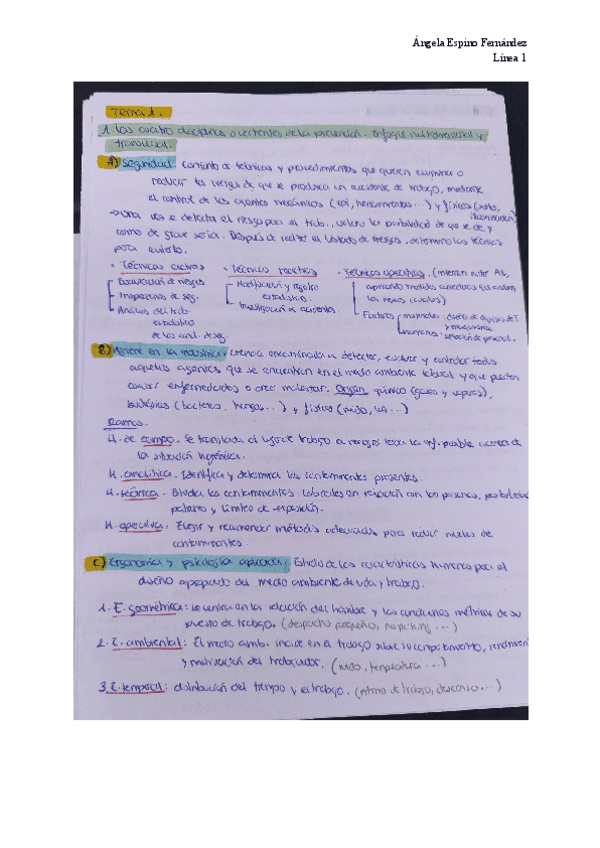 Ángela Espino Fernández
Línea 1
Tema 1.
1. Las cuatro disciplinas o vertientes de la prevención. Enfoque multidimensional y
transversal.
A) Seguridad. Conjunto de técnicas y procedimientos que quieren eliminar o
reducir los riesgos de que se produzca un accidente de trabajo, mediante
el control de los agentes mecánicos (epi, herramientas...) y físicos (ruido,
iluminación)
→ Una vez se detecta el riesgo para el trab., valora la posibilidad de que se de y
como de grave sería. Después de realizar el listado de riesgos, determina las técnicas
para evitarlo.
· Técnicas activas · Técnicas reactivas · Técnicas operativas. (intentan evitar AL,
Evaluación de riesgos Notificación y registro aplicando medidas correctoras que anulen
Inspecciones de seg. estadístico. los riesgos (cuadros)
Análisis del trab. Investigación de accidentes. Factores materiales: diseño de equipos de T
estadístico y ergonómica
de las cond. de seg. humanos: selección de personal.
B) Higiene en la industria: ciencia encaminada a detectar, evaluar y controlar todos
aquellos agentes que se encuentran en el medio ambiente laboral y que pueden
causar enfermedades o crear malestar. Origen químico (gases y vapores),
biológicos (bacterias, hongos...) y físicos (ruido, luz...)
Ramas.
H. de campo. Se traslada al lugar de trabajo a recoger toda la inf. posible acerca de
la situación higiénica.
H. analítica. Identifica y determina los contaminantes presentes.
H. teórica. Estudia los contaminantes laborales en relación con las personas,
patrones y límites de exposición.
H. operativa. Elegir y recomendar métodos adecuados para reducir niveles de
contaminantes.
C) Ergonomía y psicología aplicada: Estudio de las características humanas para el
diseño apropiado del medio ambiente de vida y trabajo.
1. E. geométrica: se centra en la relación del hombre y las condiciones métricas de su
puesto de trabajo. (despacho pequeño, no parking...)
2. E. ambiental: El medio amb. incide en el trabajo sobre su comportamiento, rendimiento
y motivación del trabajador. (ruido, temperatura...)
3. E. temporal: distribución del tiempo y el trabajo. (ritmo de trabajo, descanso...)